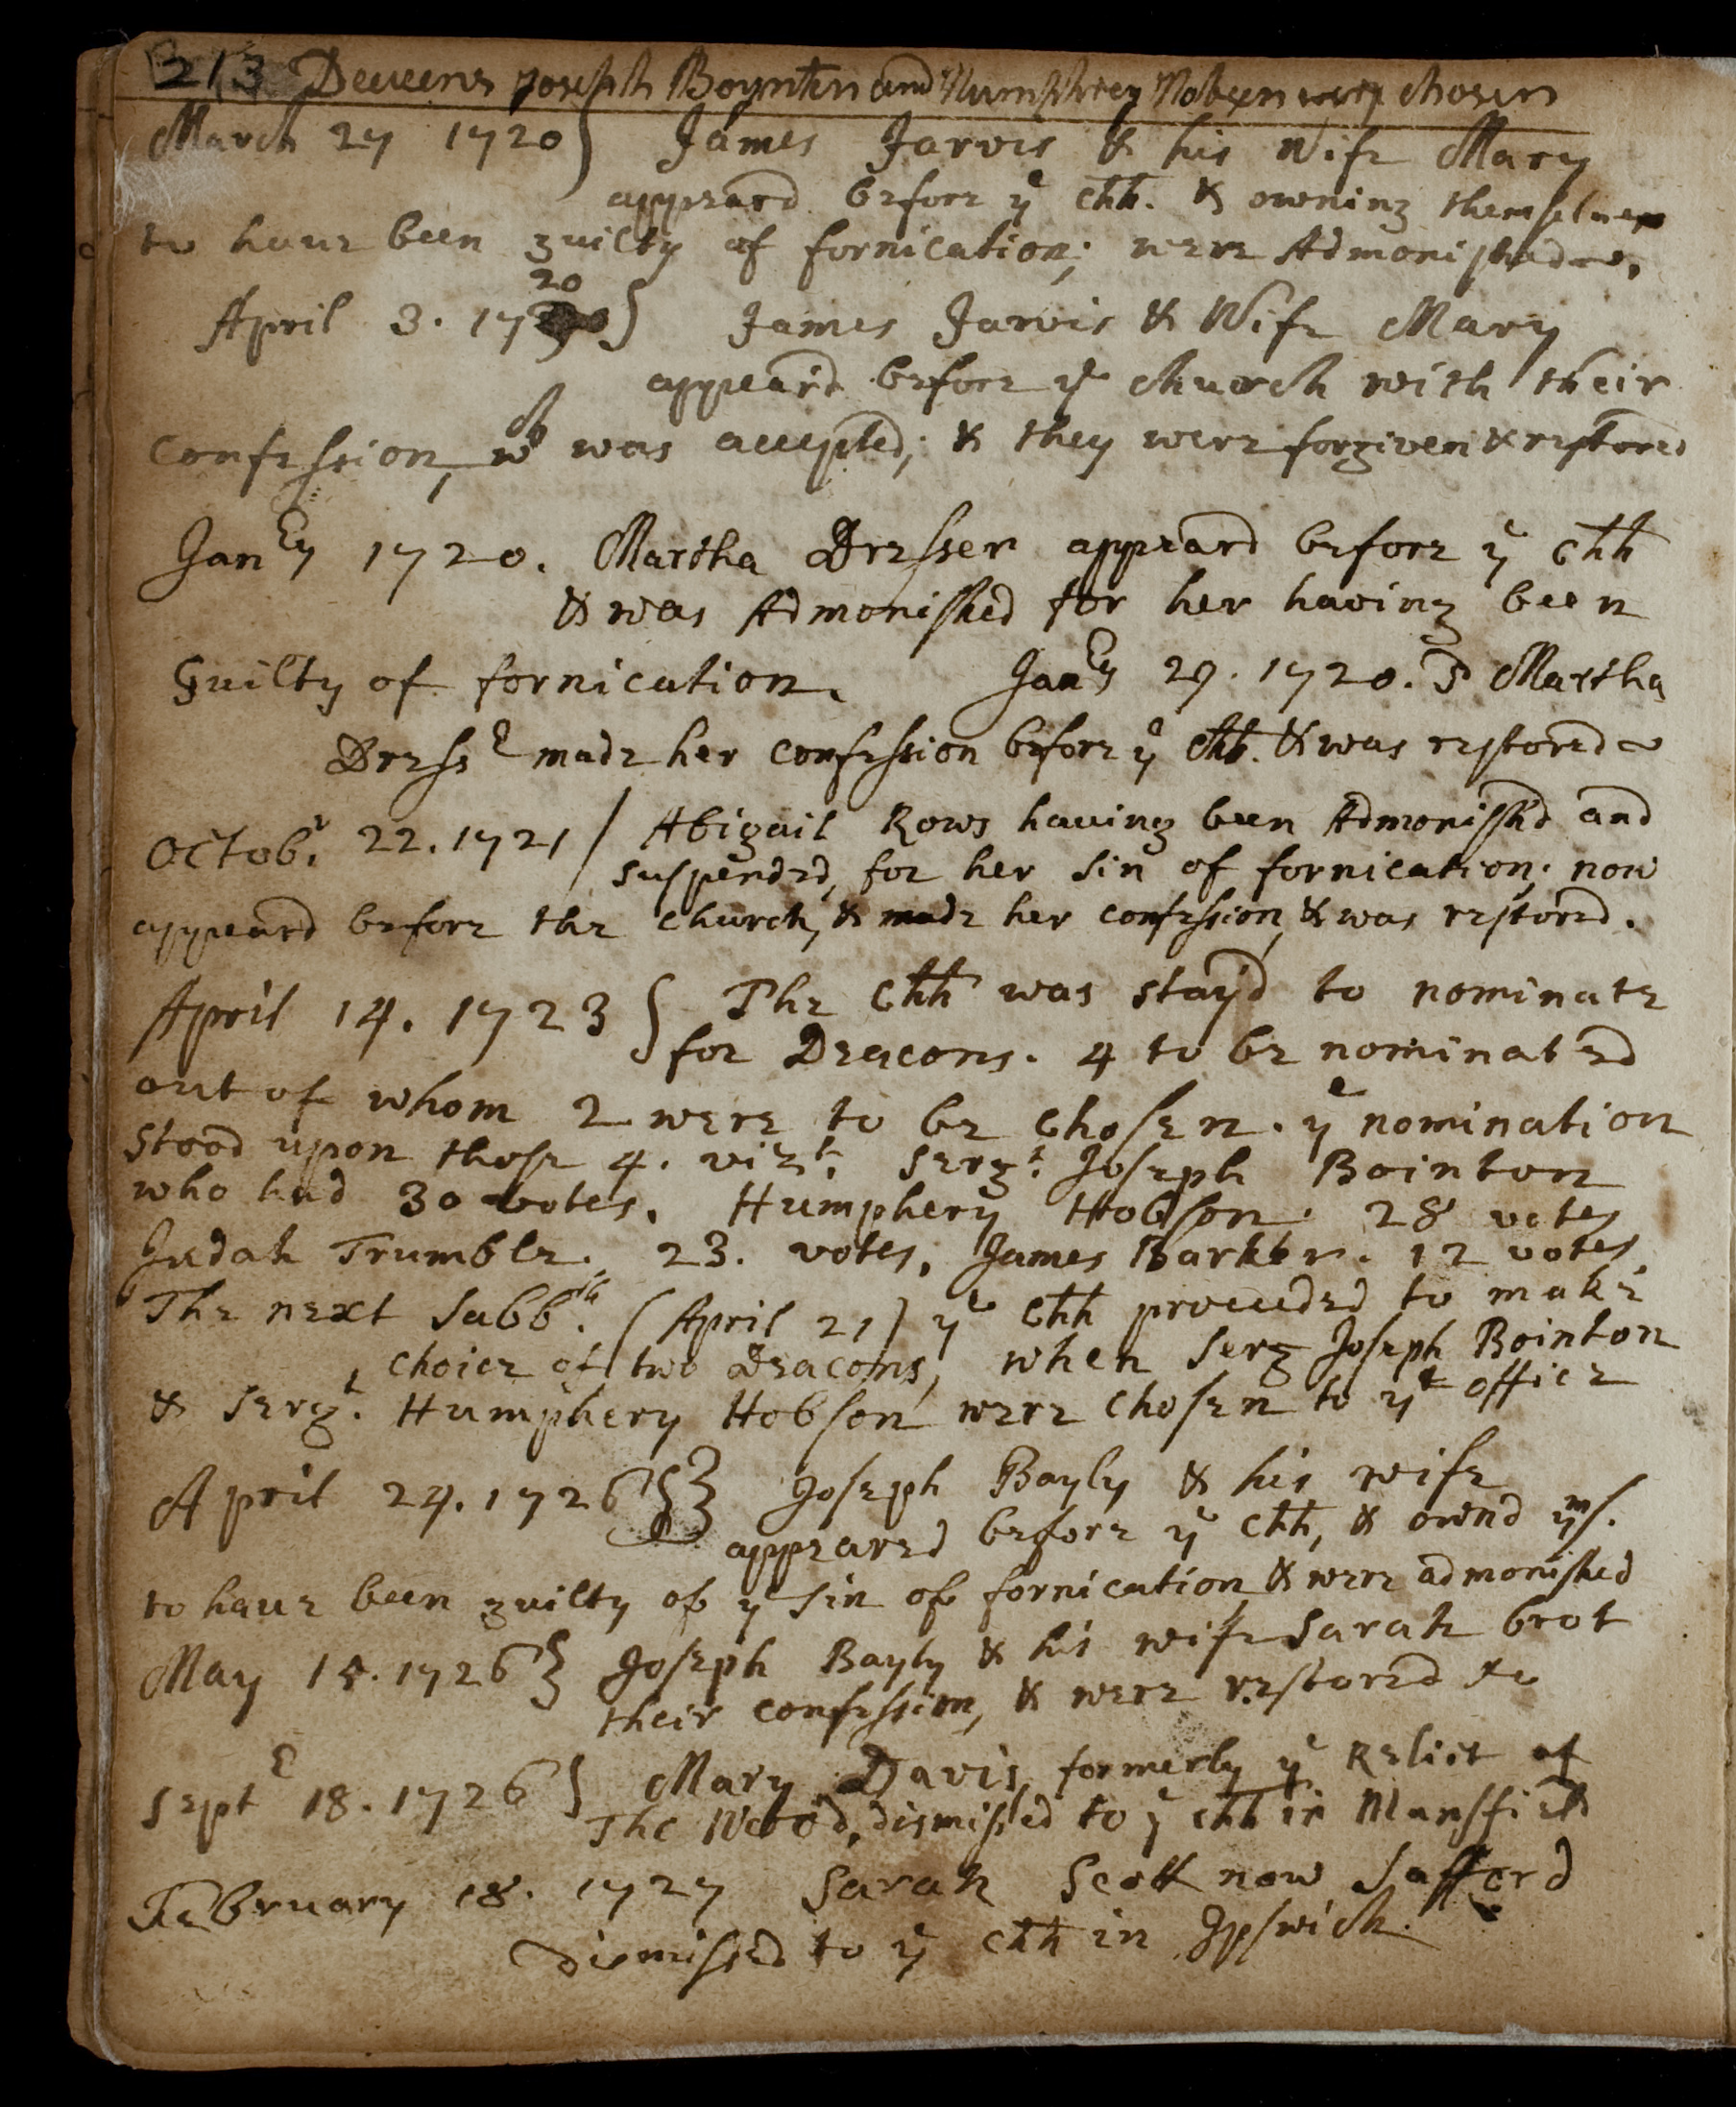 213 Deacons Joseph Boynton and Humphrey Hobson were chosen
March 27 1720} James Jarvis & his Wife Mary
appeard before yͤ Chh. & owning themselves
to haue been guilty of fornication; were Admonished.
20
April 3. 17 } James Jarvis & Wife Mary
appeard before yͤ church with their
Confession, wᶜʰ was accepted; & they were forgiven & restored
Janʳʸ 1720. Martha Dresser appeard before yͤ Chh
& was Admonished for her having been
Guilty of fornication. Janʳʸ 29. 1720. Martha
Dressʳ made her Confession before yͤ Chh. & was restored
Octobʳ. 22. 1721 / Abigail Rows hauing been Admonishd and
suspended, for her sin of fornication; now
appeard before the Church, & made her confession, & was restored.
April 14. 1723 { The Chh was stay'd to nominate
for Deacons. 4 to be nominated
out of whom 2 were to be Chosen. yͤ nomination
stood upon those 4. vizᵗ. Sergᵗ. Joseph Bointon
who had 30 votes. Humphery Hobson. 28 votes
Judah Trumble. 23. votes, James Barker. 12 votes.
The next Sabbᵗʰ. (April 21) yͤ Chh proceeded to make
choice of two Deacons, when Serg Joseph Bointon
& Sergᵗ. Humphery Hobson were Chosen to yᵗ office
April 24. 1726 }} Joseph Bayly & his wife
appeared before yͤ Chh, & ownd yᵐs.
to haue been guilty of yͤ sin of fornication, & were admonished
May 15. 1726 } Joseph Bayly & his wife Sarah brot
their confession, & were restored &c
Septʳ 18. 1726 } Mary Davis, formerly yͤ Relict of
Tho Wood, dismissed to yͤ chh in Mansfield
February 18. 1727 Sarah Scott now Safford
dismissed to yͤ Chh in Ipswich.